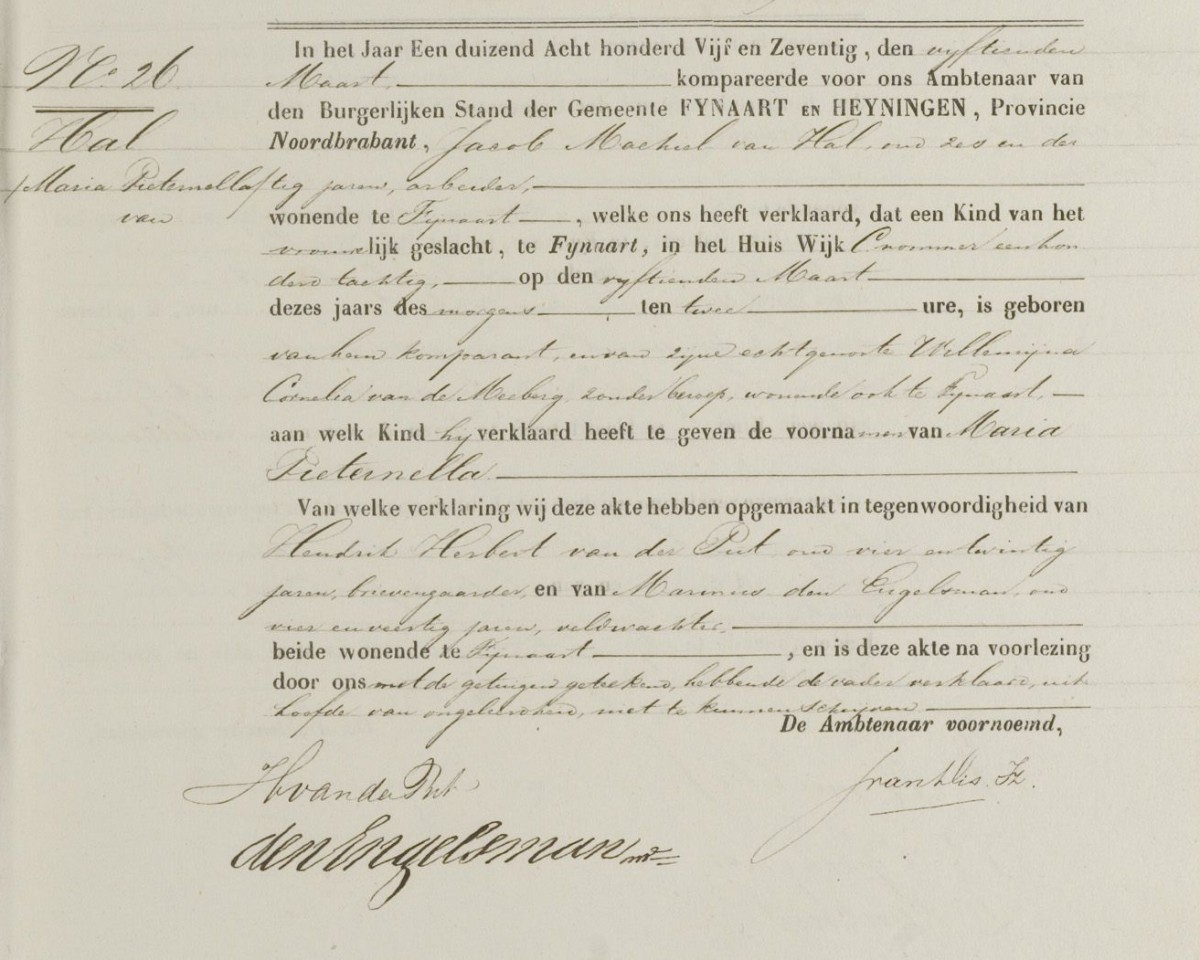 No. 26
Hal
Maria Pieternella
van
In het Jaar Een duizend Acht honderd Vijf en Zeventig, den vyftienden
Maart kompareerde voor ons Ambtenaar van
den Burgerlijken Stand der Gemeente FYNAART EN HEYNINGEN, Provincie
Noordbrabant, Jacob Machiel van Hal, oud zes en der
tig jaren, arbeider,
wonende te Fynaart, welke ons heeft verklaard, dat een Kind van het
vrouwlijk geslacht, te Fynaart, in het Huis Wijk C nommer eenhon
derd tachtig, op den vyftienden Maart
dezes jaars des morgens ten twee ure, is geboren
van hem komparant, en van zijne echtgenoote Willemijna
Cornelia van de Meeberg, zonder beroep, wonende ook te Fynaart,
aan welk Kind hy verklaard heeft te geven de voornamen van Maria
Pieternella
Van welke verklaring wij deze akte hebben opgemaakt in tegenwoordigheid van
Hendrik Herbert van der Put oud vier en twintig
jaren, brievengaarder, en van Marinus den Engelsman, oud
vier en veertig jaren, veldwachter,
beide wonende te Fynaart, en is deze akte na voorlezing
door ons met de getuigen geteekend, hebbende de vader verklaard, uit
hoofde van ongeleerdheid, niet te kunnen schrijven
De Ambtenaar voornoemd,
H van de Put
den Engelsman